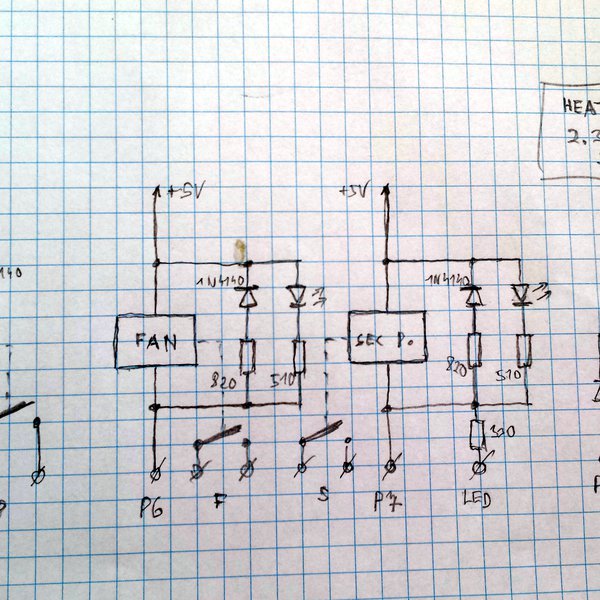 HEAT
2.3
+5V
+5V
140
1N4140
1N4140
FAN
SEC P.
820
510
820
510
300
P6
F
S
P7
LED
P